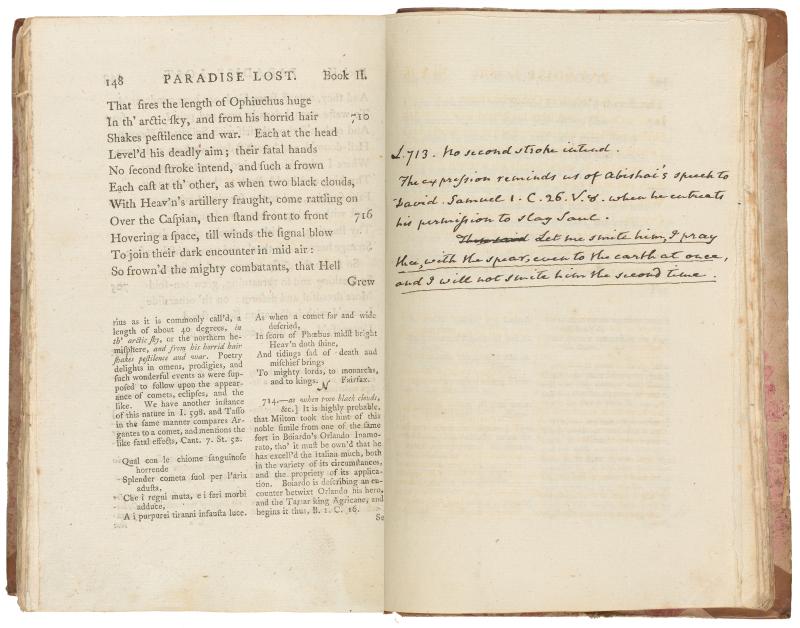 148 PARADISE LOST. Book II.
That fires the length of Ophiuchus huge
In th' arctic ſky, and from his horrid hair 710
Shakes peſtilence and war. Each at the head
Level'd his deadly aim; their fatal hands
No second ſtroke intend, and ſuch a frown
Each caſt at th' other, as when two black clouds,
With Heav'n's artillery fraught, come rattling on
Over the Caſpian, then ſtand front to front 716
Hovering a ſpace, till winds the ſignal blow
To join their dark encounter in mid air:
So frown'd the mighty combatants, that Hell
Grew
rius as it is commonly call'd, a
length of about 40 degrees, in
th' arctic ſky, or the northern he-
miſphere, and from his horrid hair
ſhakes peſtilence and war. Poetry
delights in omens, prodigies, and
ſuch wonderful events as were ſup-
poſed to follow upon the appear-
ance of comets, eclipſes, and the
like. We have another inſtance
of this nature in I. 598. and Taſſo
in the ſame manner compares Ar-
gantes to a comet, and mentions the
like fatal effects, Cant. 7. St. 52.
Qual con le chiome ſanguinoſe
horrende
Splender cometa ſuol per l'aria
aduſta,
Che i regni muta, e i feri morbi
adduce,
A i purpurei tiranni infauſta luce.
As when a comet far and wide
deſcried,
In ſcorn of Phœbus midſt bright
Heav'n doth ſhine,
And tidings ſad of death and
miſchief brings
To mighty lords, to monarchs,
and to kings. Fairfax.
N
714.—as when two black clouds,
&c.] It is highly probable,
that Milton took the hint of this
noble ſimile from one of the ſame
ſort in Boiardo's Orlando Inamo-
rato, tho' it muſt be own'd that he
has excell'd the Italian much, both
in the variety of its circumſtances,
and the propriety of its applica-
tion. Boiardo is deſcribing an en-
counter betwixt Orlando his hero,
and the Tartar king Agricane, and
begins it thus, B. 1. C. 16.
Se
L.713. No second stroke intend.
The expression reminds us of Abishai's speech to
David. Samuel 1. C. 26. V. 8. when he entreats
his permission to slay Saul.
Thus said Let me smite him, I pray
thee, with the spear, even to the earth at once,
and I will not smite him the second time.